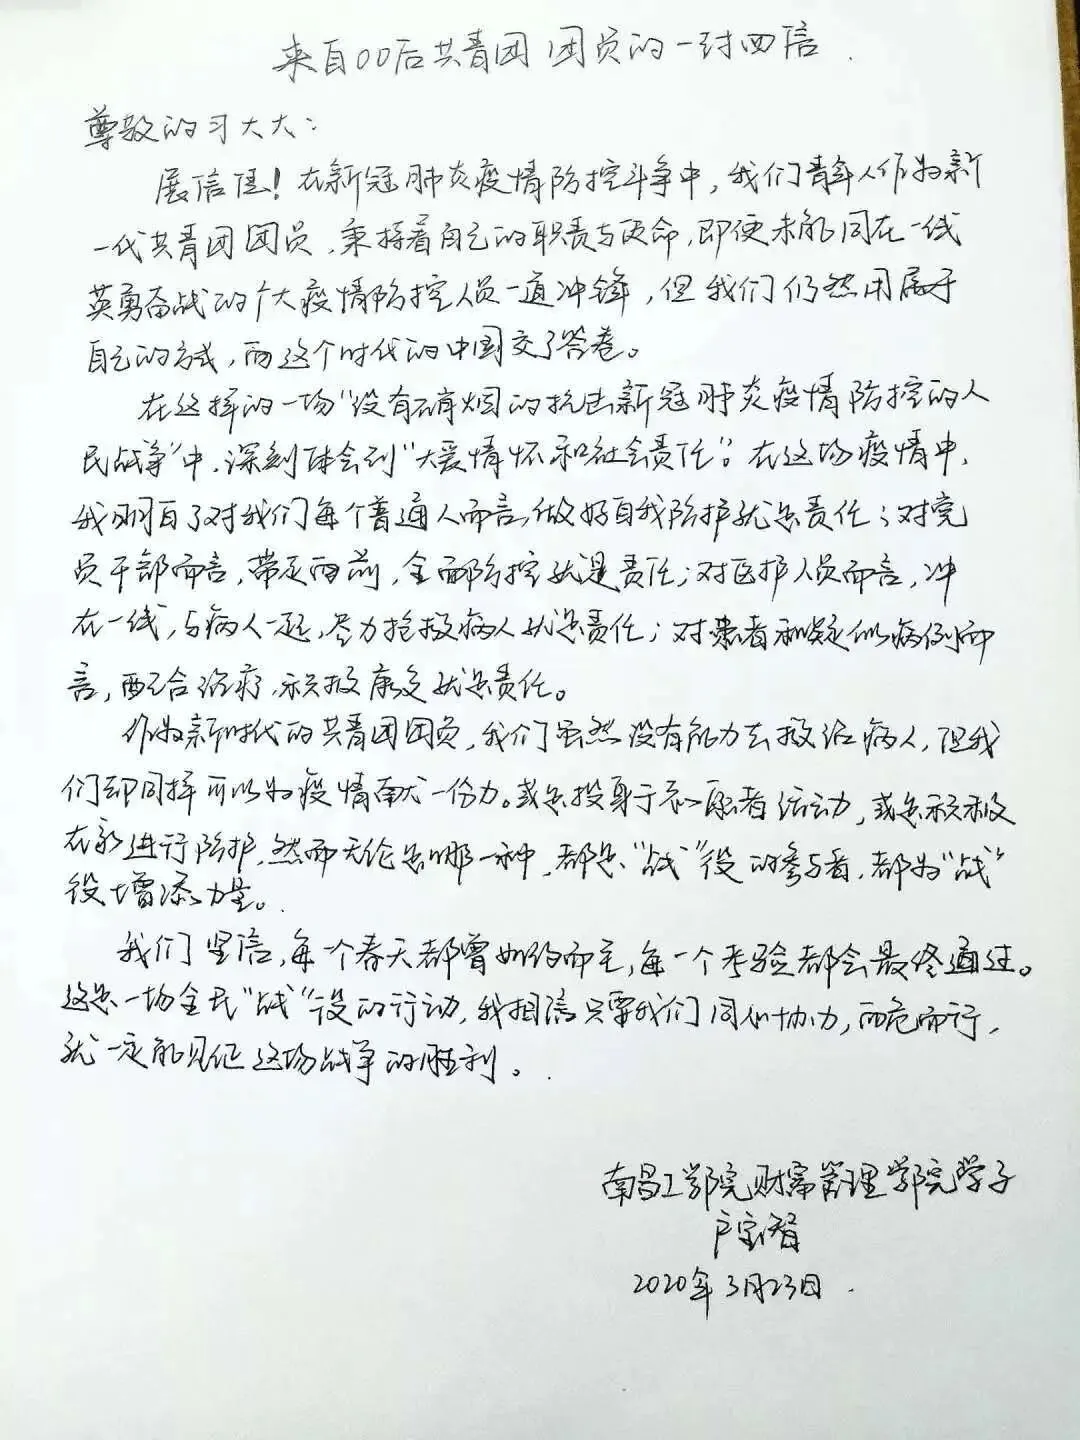 来自00后共青团团员的一封回信
尊敬的习大大：
展信佳！在新冠肺炎疫情防控斗争中，我们青年人作为新
一代共青团团员，秉持着自己的职责与使命，即便未能同在一线
英勇奋战的个大疫情防控人员一道冲锋，但我们仍然用属于
自己的方式，向这个时代的中国交了答卷。
在这样的一场“没有硝烟的抗击新冠肺炎疫情防控的人
民战争”中，深刻体会到“大爱情怀和社会责任”。在这场疫情中，
我明白了对我们每个普通人而言，做好自我防护就是责任；对党
员干部而言，带走在前，全面防控就是责任；对医护人员而言，冲
在一线，与病人一起，尽力抢救病人就是责任；对患者和疑似病例而
言，配合治疗，积极康复就是责任。
作为新时代的共青团团员，我们虽然没有能力去救治病人，但我
们却同样可以为疫情献一份力。或是投身于志愿者活动，或是积极
在家进行防护，然而无论是哪一种，都是“战”役的参与者，都为“战”
役增添力量。
我们坚信，每一个春天都会如约而至，每一个考验都会最终通过。
这是一场全民“战”役的行动，我相信只要我们同心协力，向危而行，
就一定能见证这场战争的胜利。
南昌工学院财富管理学院学子
2020年3月23日.